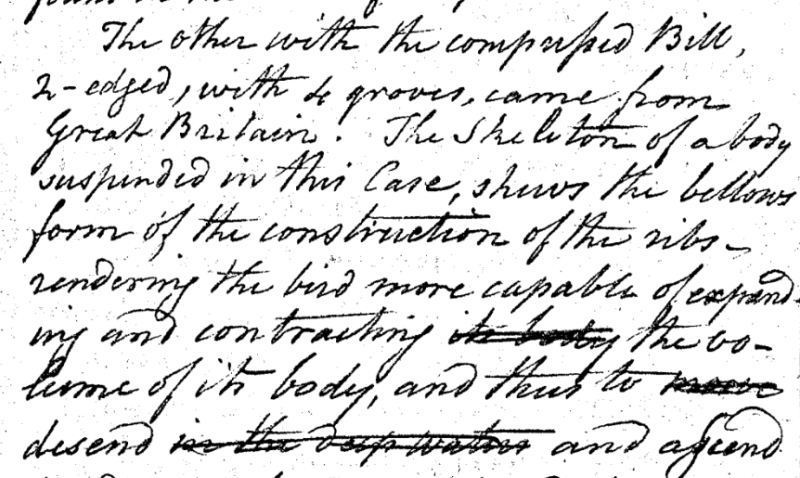 The other with the compressed Bill,
2-edged, with 4 groves, came from
Great Britain. The Skeleton of a body
suspended in this Case, shews the bellows
form of the construction of the ribs -
rendering the bird more capable of expand-
ing and contracting its body the vo-
lume of its body, and thus to
desend in the deep waters and ascend